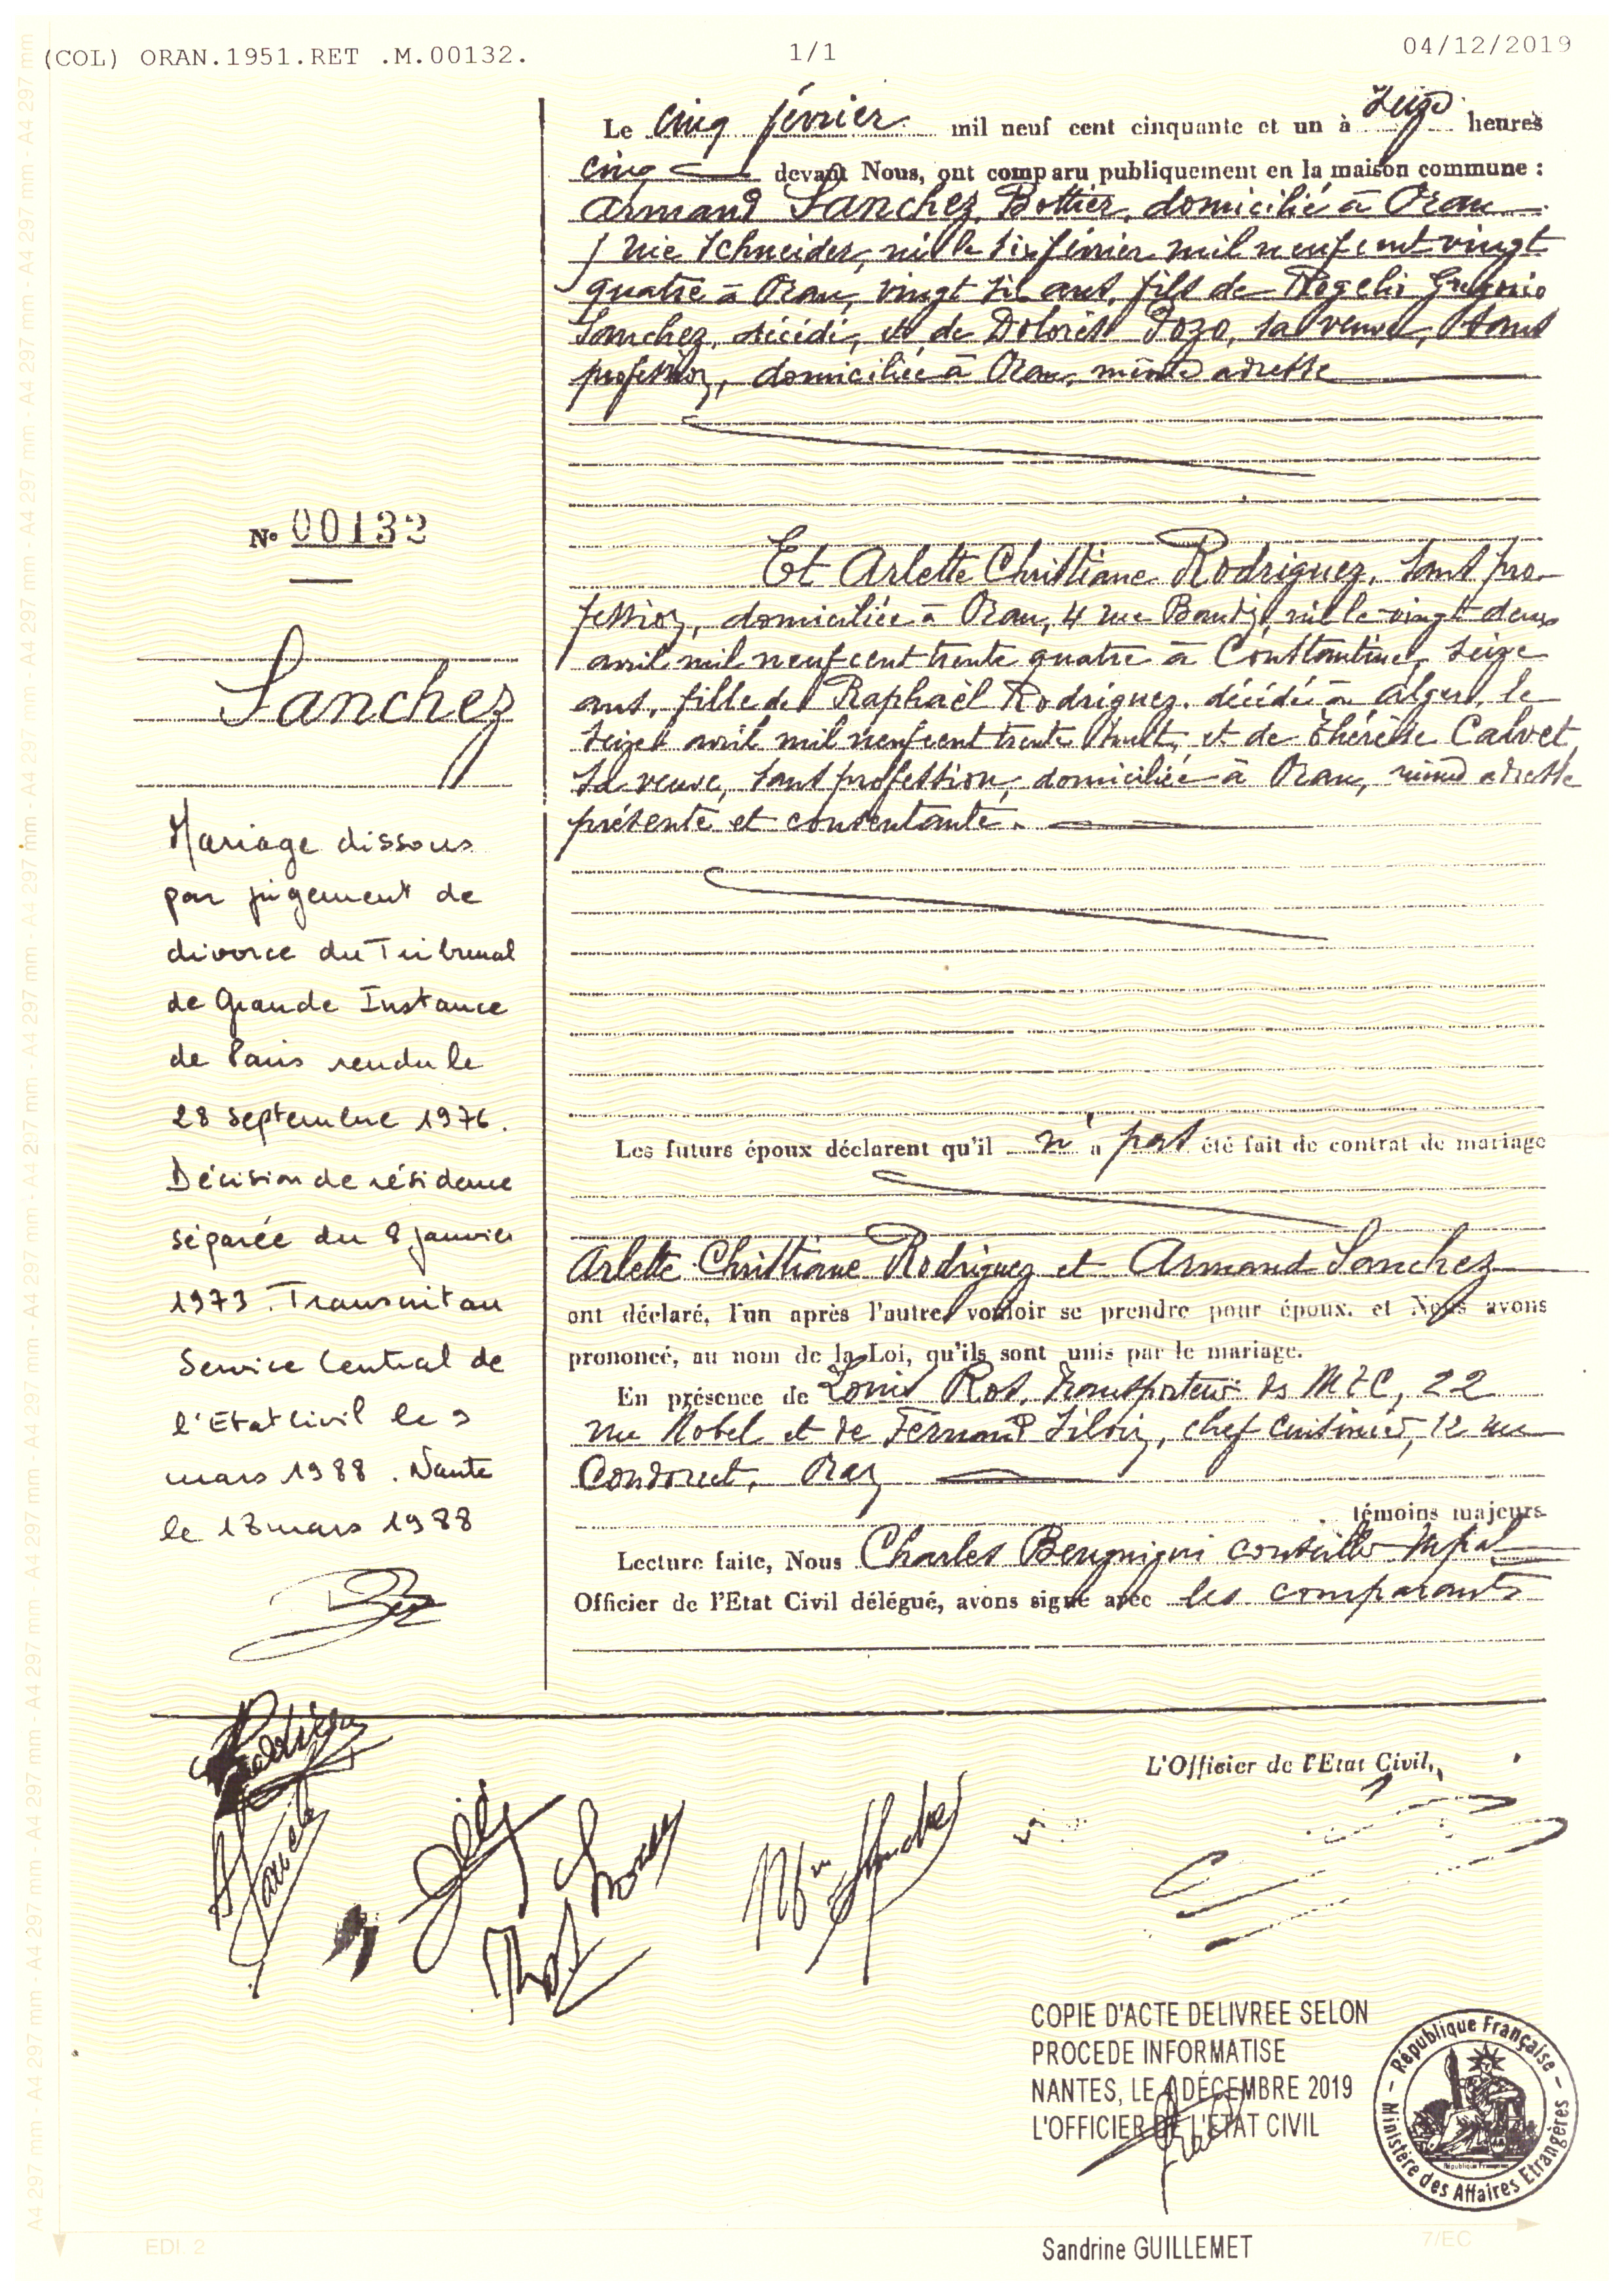 (COL) ORAN.1951.RET .M.00132.
1/1
04/12/2019
Le cinq février mil neuf cent cinquante et un à seize heures
cinq devant Nous, ont comparu publiquement en la maison commune :
Armand Sanchez, Bottier, domicilié à Oran
rue Schneider, né le six février mil neuf cent vingt
quatre à Oran, vingt six ans, fils de Rogelio Gregorio
Sanchez, décédé, et de Dolorès Pozo, sa veuve, sans
profession, domiciliée à Oran, même adresse
Et Arlette Christiane Rodriguez, sans pro-
fession, domiciliée à Oran, 4 rue Baudin, née le vingt deux
avril mil neuf cent trente quatre à Constantine, seize
ans, fille de Raphaël Rodriguez, décédé à Alger, le
seize avril mil neuf cent trente huit, et de Thérèse Calvet,
sa veuve, sans profession, domiciliée à Oran, même adresse
présente et consentante.
Les futurs époux déclarent qu'il n'a pas été fait de contrat de mariage
Arlette Christiane Rodriguez et Armand Sanchez
ont déclaré, l'un après l'autre vouloir se prendre pour époux, et Nous avons
prononcé, au nom de la Loi, qu'ils sont unis par le mariage.
En présence de Louis Ros, transporteur 22
rue Nobel et de Fernand Silvin, chef cuisinier, 12 rue
Condorcet, Oran
témoins majeurs
Lecture faite, Nous Charles Benguigui conseiller mpal
Officier de l'Etat Civil délégué, avons signé avec les comparants
N° 00132
Sanchez
Mariage dissous
par jugement de
divorce du Tribunal
de Grande Instance
de Paris rendu le
28 septembre 1976.
Décision de résidence
séparée du 8 janvier
1973. Transcrit au
Service Central de
l'Etat Civil le 9
mars 1988. Nantes
le 18 mars 1988
L'Officier de l'Etat Civil,
Rodriguez
A Sanchez
Ros
Mme Sanchez
COPIE D'ACTE DELIVREE SELON
PROCEDE INFORMATISE
NANTES, LE 4 DÉCEMBRE 2019
L'OFFICIER DE L'ETAT CIVIL
République Française
Ministère des Affaires Etrangères
Sandrine GUILLEMET
EDI 2
7/EC
A4 297 mm - A4 297 mm - A4 297 mm - A4 297 mm - A4 297 mm - A4 297 mm - A4 297 mm - A4 297 mm